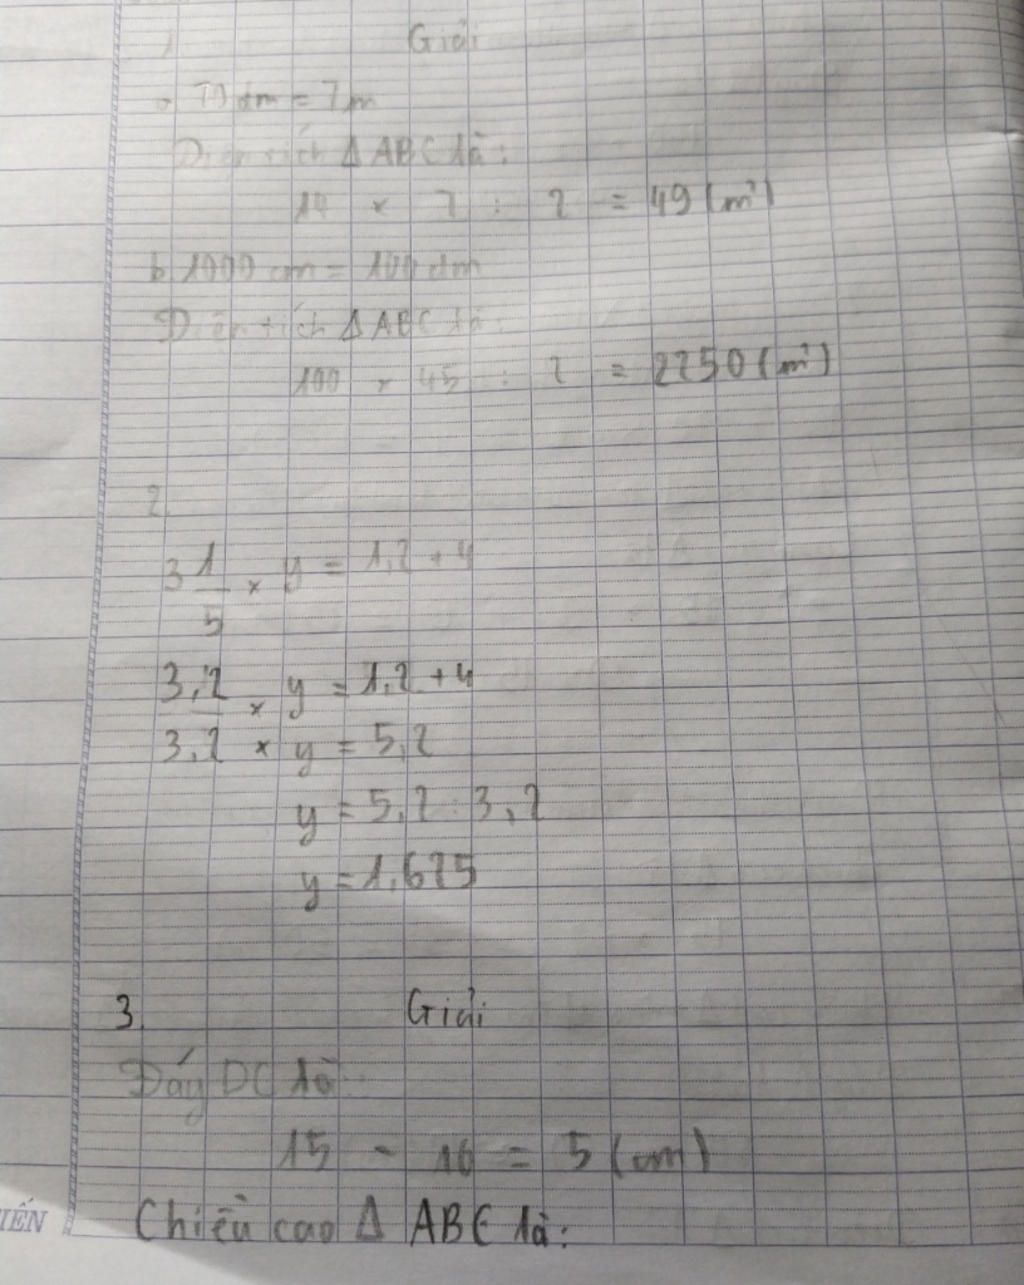 1
Giải
a 70 dm = 7 m
Diện tích Δ ABC là:
14 × 7 : 2 = 49 (m²)
b 1000 cm = 100 dm
Diện tích Δ ABC là:
100 × 45 : 2 = 2250 (m²)
2.
3 1/5 × y = 1,2 + 4
3,2 × y = 1,2 + 4
3,2 × y = 5,2
y = 5,2 : 3,2
y = 1,625
3. Giải
Đáy DC là:
15 - 10 = 5 (cm)
IẾN
Chiều cao Δ ABC là: